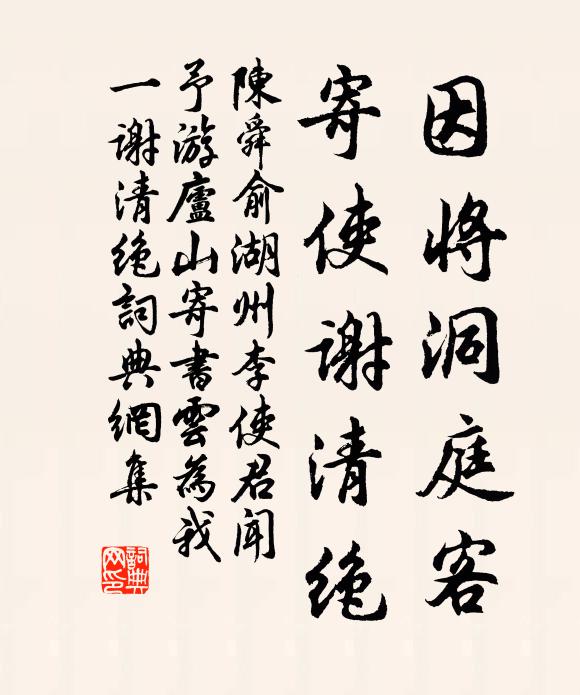 因將洞庭客
寄使謝清絶
陳舜俞湖州李使君聞
予游廬山寄書雲為我
一謝清絶詞典網集
詞典网印